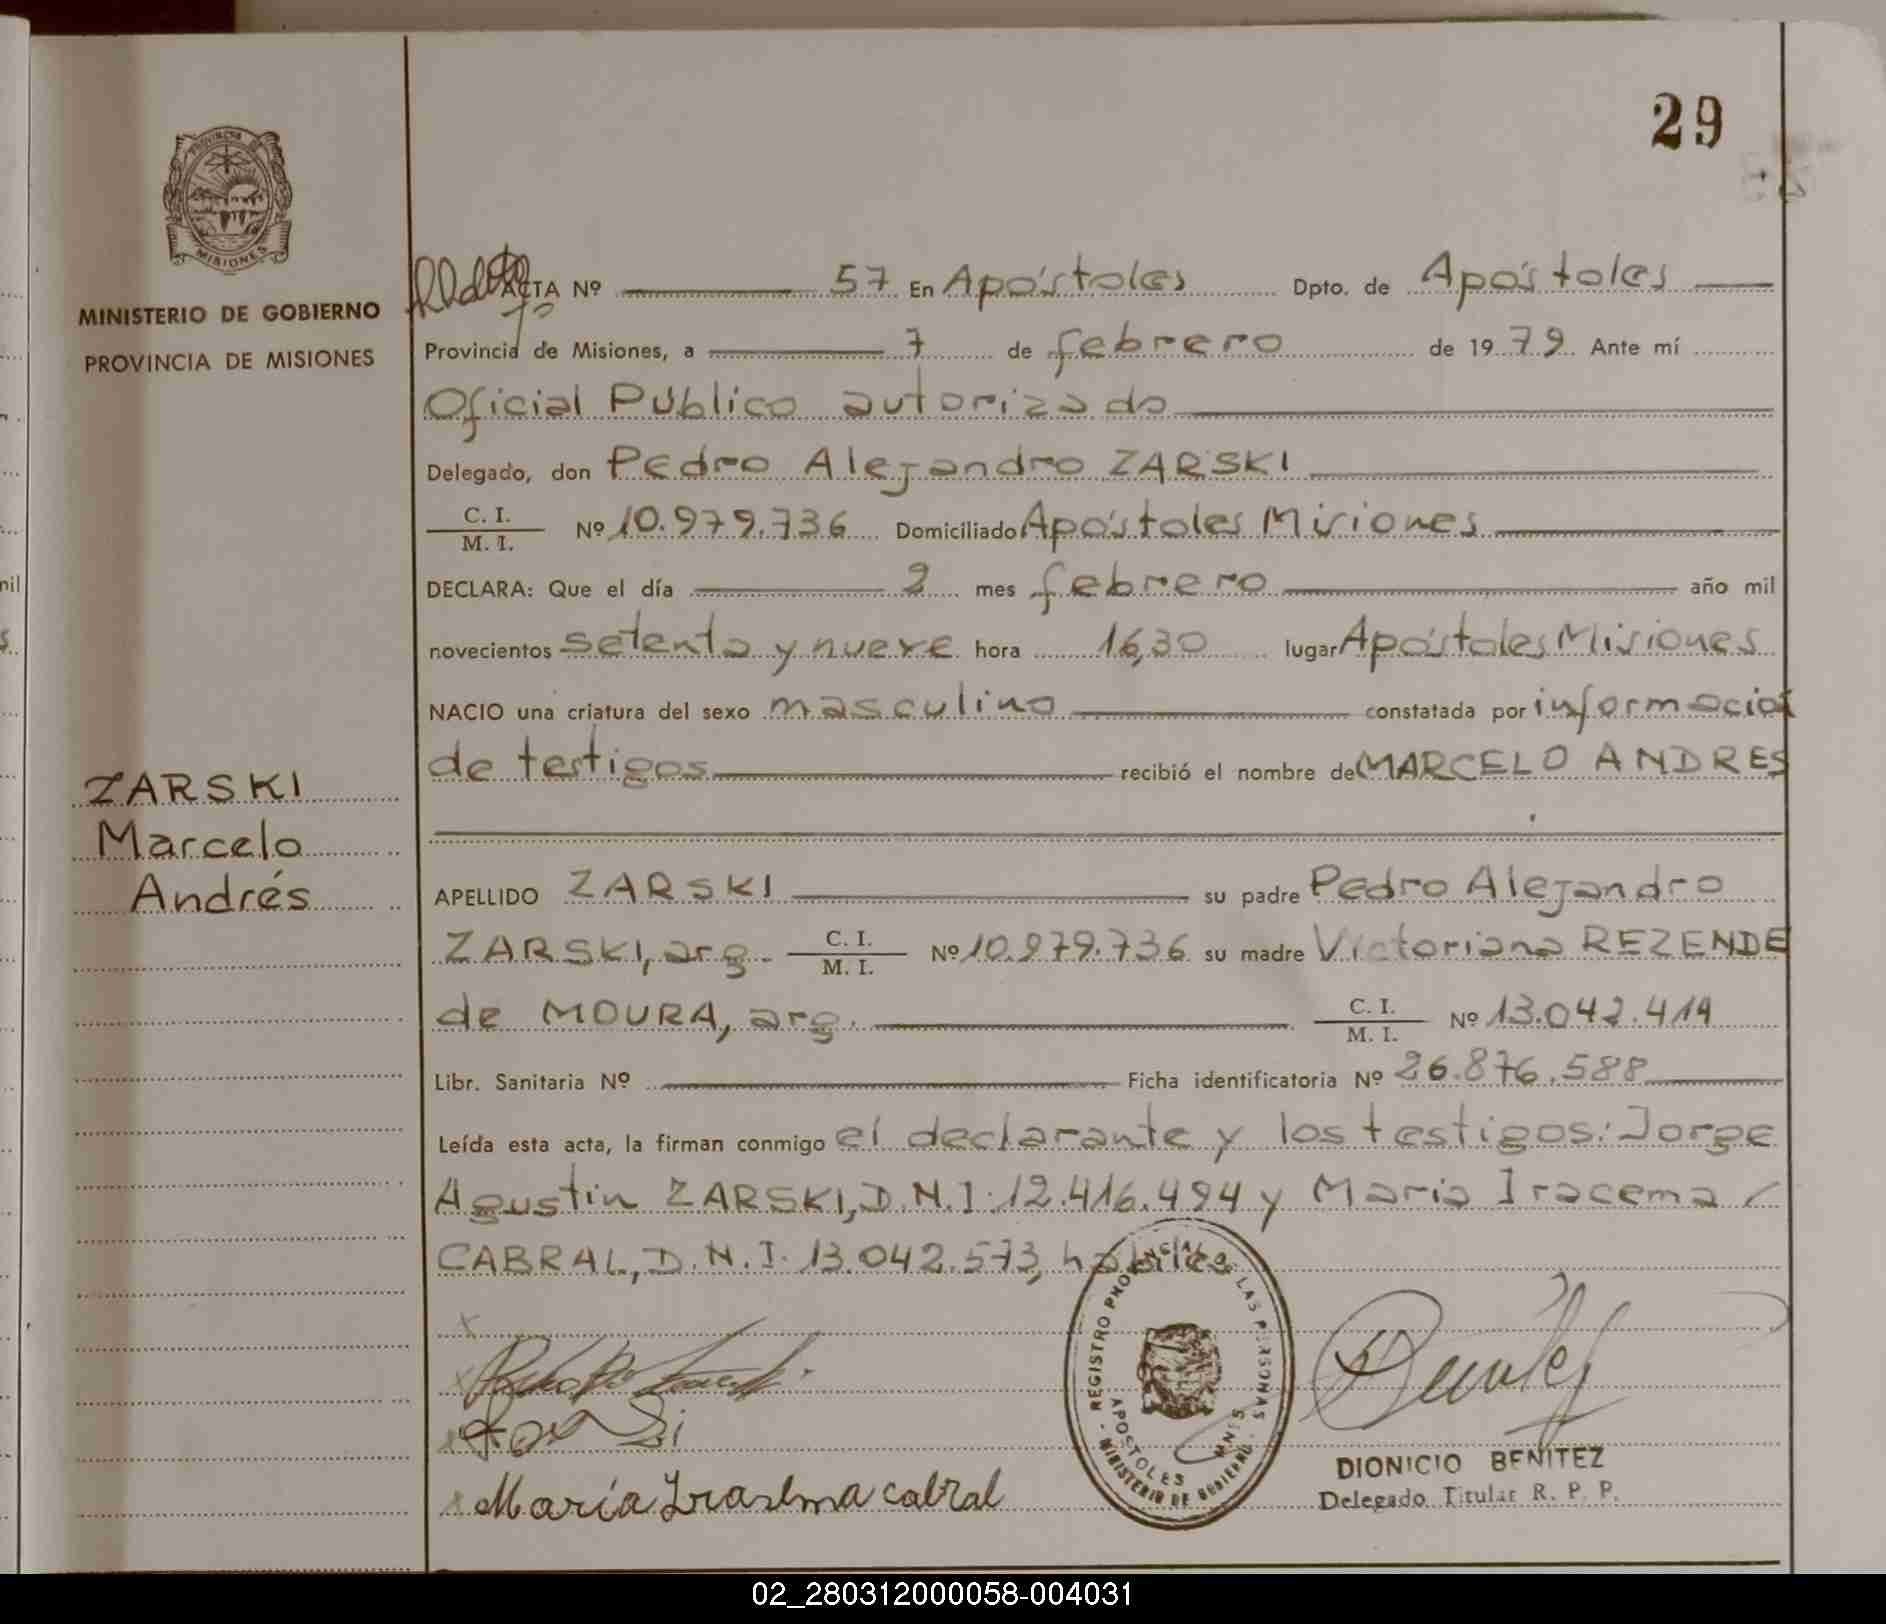 29
PROVINCIA DE
MISIONES
MINISTERIO DE GOBIERNO
PROVINCIA DE MISIONES
ACTA Nº 57 En Apóstoles Dpto. de Apóstoles
Provincia de Misiones, a 7 de febrero de 1979. Ante mí
Oficial Público autorizado
Delegado, don Pedro Alejandro ZARSKI
C. I.
M. I. Nº 10.979.736 Domiciliado Apóstoles Misiones
DECLARA: Que el día 2 mes febrero año mil
novecientos setenta y nueve hora 16,30 lugar Apóstoles Misiones
NACIO una criatura del sexo masculino constatada por informacion
de testigos recibió el nombre de MARCELO ANDRES
ZARSKI
Marcelo
Andrés
APELLIDO ZARSKI su padre Pedro Alejandro
ZARSKI, arg. C. I.
M. I. Nº 10.979.736 su madre Victoriana REZENDE
de MOURA, arg. C. I.
M. I. Nº 13.042.414
Libr. Sanitaria Nº Ficha identificatoria Nº 26.876.588
Leída esta acta, la firman conmigo el declarante y los testigos: Jorge
Agustin ZARSKI, D.N.I. 12.416.494 y Maria Iracema
CABRAL, D.N.I. 13.042.573, habiles
REGISTRO PROVINCIAL DE LAS PERSONAS
APOSTOLES MNES
MINISTERIO DE GOBIERNO
María Iraselma cabral
DIONICIO BENITEZ
Delegado Titular R. P. P.
02_280312000058-004031